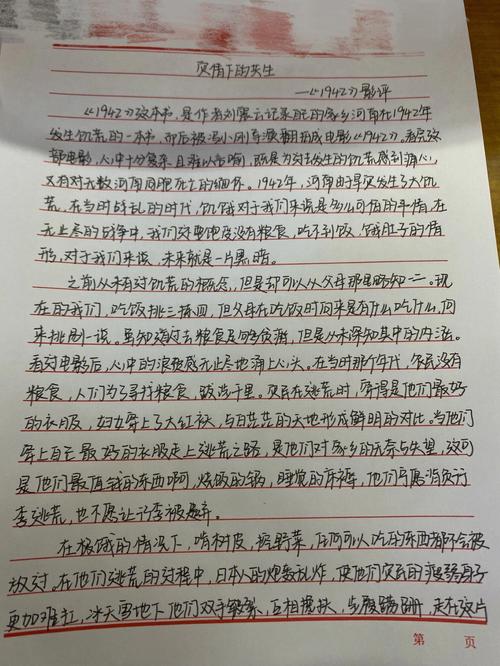 灾情下的共生
——《1942》影评
《1942》这本书,是作者刘震云记录自己的家乡河南在1942年
发生饥荒的一本书,而后被冯小刚导演翻拍成电影《1942》。看完这
部电影,心中十分复杂且难以言喻,既是为对发生的饥荒感到痛心,
又有对无数河南同胞死亡的缅怀。1942年,河南由于旱灾发生了大饥
荒,在当时战乱的时代,饥饿对于我们来说是多么可怕的事情,在
无止尽的战争中,我们还要饱受没有粮食,吃不到饭,饿肚子的情
形,对于我们来说,未来就是一片黑暗。
之前从未有对饥荒的概念,但是却可以从父母那里略知一二。现
在的我们,吃饭挑三拣四,但父母在吃饭时向来是有什么吃什么,何
来挑剔一说。虽知道过去粮食及财务贫瘠,但是从未深知其中的内涵。
看过电影后,心中的浪漫感无止尽地涌上心头。在当时那个年代,农民没有
粮食,人们为了寻找粮食,跋涉千里。灾民在逃荒时,穿得是他们最好
的衣服,妇女穿上了大红袄,与白茫茫的天地形成鲜明的对比。当他们
穿上自己最好的衣服走上逃荒之路,是他们对家乡的无奈与失望,这可
是他们最值钱的东西啊,烧饭的锅,睡觉的床褥,他们宁愿背负行
李逃荒,也不愿让行李被遗弃。
在极饿的情况下,啃树皮,挖野菜,任何可以吃的东西都不会被
放过。在他们逃荒的过程中,日本人的炮轰乱炸,使他们灾民的瘦弱身子
更加难扛,冰天雪地下他们双手皲裂,互相搀扶,步履蹒跚,走在这片
第 页